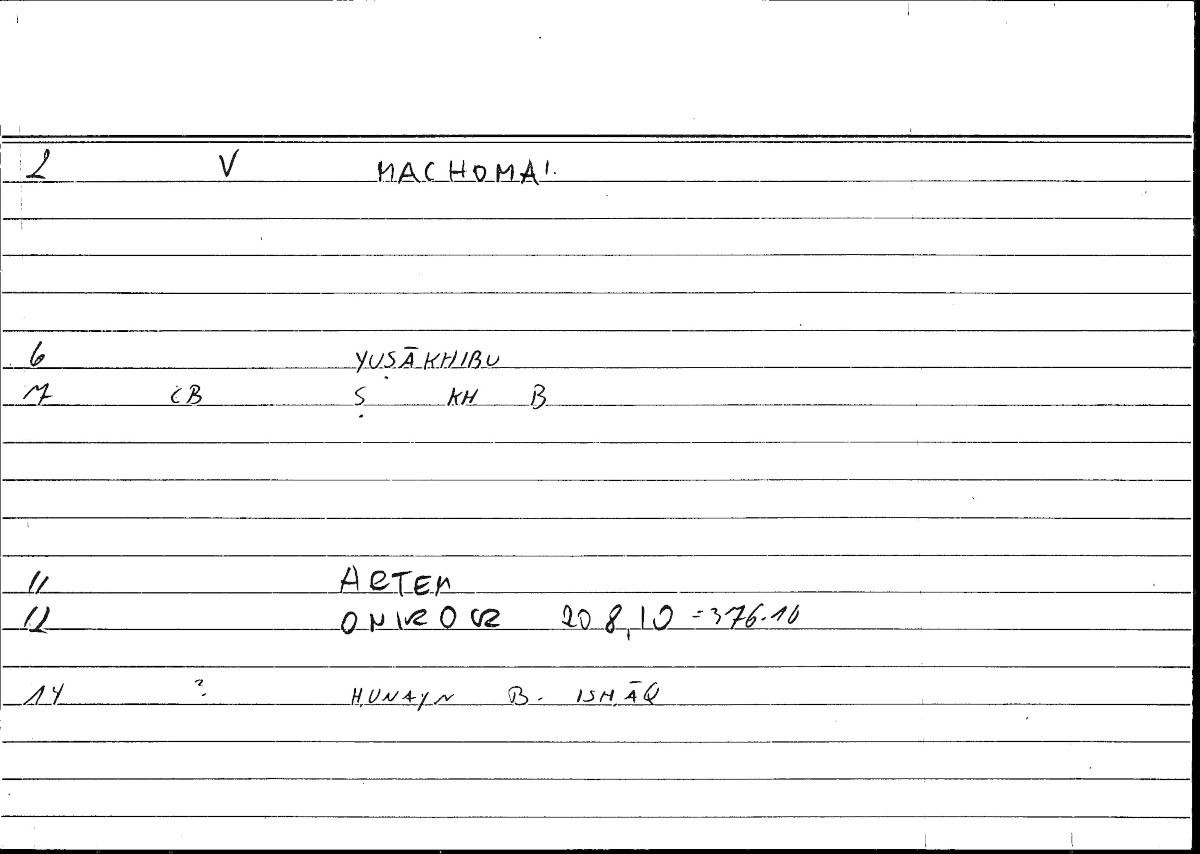 2 V MACHOMAI.
6 YUṢĀKHIBU
7 CB Ṣ KH B
11 ARTEM
12 ONIROCR 208,10 =376.10
14 ? ḤUNAYN B. ISḤĀQ